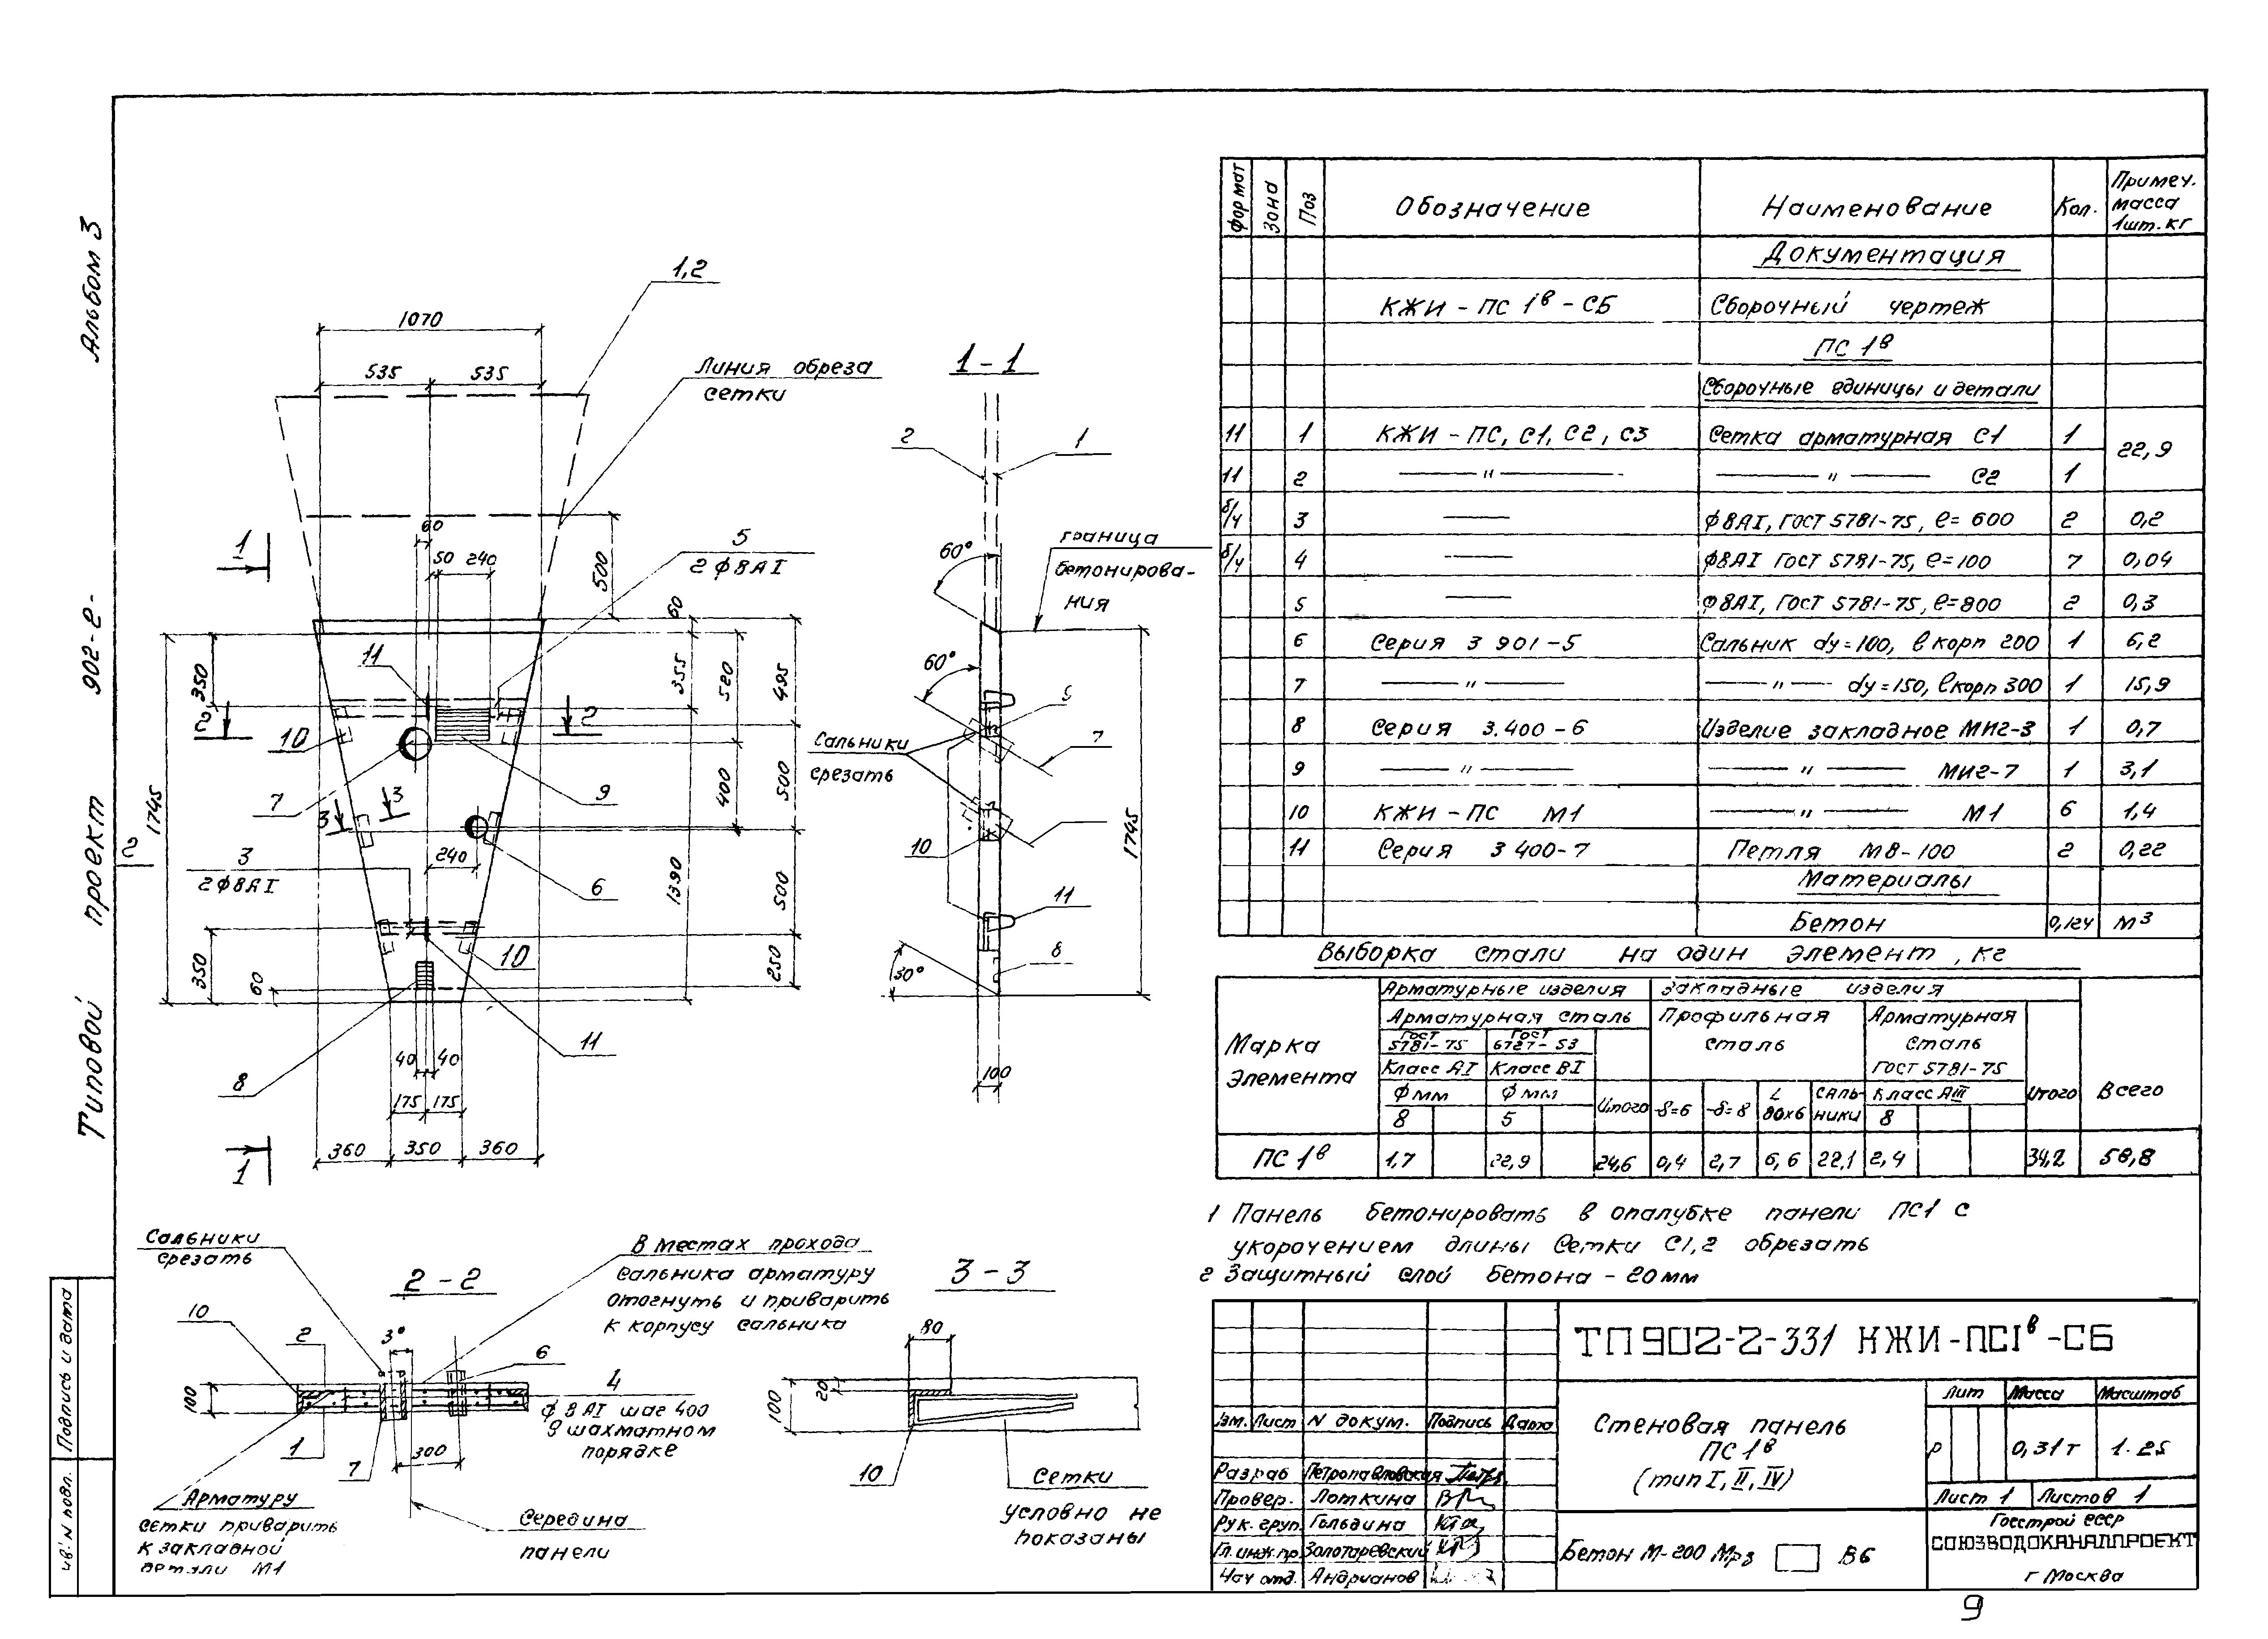 Альбом 3
902-2-
проект
Типовой
2
Подпись и дата
1,2
1070
535
535
Линия обреза
сетки
1
60
50
240
5
2 ф 8 А I
500
60
350
11
355
520
495
2
2
10
7
3
3
9
400
500
1745
3
2 ф 8 А I
240
6
1390
500
350
60
10
250
8
40
40
11
175
175
1
360
350
360
1-1
2
1
60°
граница
бетонирова-
ния
60°
7
Сальники
срезать
10
1745
11
8
30°
100
Сальники
срезать
2-2
В местах прохода
сальника арматуру
отогнуть и приварить
к корпусу сальника
10
2
3°
6
4
ф 8 АI шаг 400
в шахматном
порядке
100
1
7
300
Арматуру
сетки приварить
к закладной
детали М1
Середина
панели
3-3
80
20
100
10
Сетки
условно не
показаны
Формат
Зона
Поз
Обозначение
Наименование
Кол.
Примеч.
масса
1шт. кг
Документация
КЖИ - ПС 1в - СБ
Сборочный чертеж
ПС 1в
Сборочные единицы и детали
11 1 КЖИ - ПС, С1, С2, С3 Сетка арматурная С1 1 22,9
11 2 — " — — " — С2 1
б/ч 3 — ф 8АI, ГОСТ 5781-75, e= 600 2 0,2
б/ч 4 — ф8АI ГОСТ 5781-75, e=100 7 0,04
5 — ф 8АI, ГОСТ 5781-75, e=800 2 0,3
6 Серия 3 901-5 Сальник dy=100, в корп 200 1 6,2
7 — " — — " — dy=150, вкорп 300 1 15,9
8 Серия 3.400-6 Изделие закладное МИ2-3 1 0,7
9 — " — — " — МИ2-7 1 3,1
10 КЖИ - ПС М1 — " — М1 6 1,4
11 Серия 3 400-7 Петля МВ-100 2 0,22
Материалы
Бетон 0,124 м3
Выборка стали на один элемент, кг
Марка
Элемента
Арматурные изделия
Закладные изделия
Всего
Арматурная сталь
Профильная
сталь
Арматурная
сталь
ГОСТ 5781-75
ГОСТ
5781-75
ГОСТ
6727-53
Класс АI
Класс ВI
Класс АIII
Ф мм
Ф мм
Итого
-δ=6
-δ=8
L
80х6
Саль-
ники
Итого
8
5
8
ПС 1в 1,7 22,9 24,6 0,4 2,7 6,6 22,1 2,4 34,2 58,8
1 Панель бетонировать в опалубке панели ПС1 с
укорочением длины Сетки С1,2 обрезать
2 Защитный слой бетона - 20 мм
ТП 902-2-331 КЖИ-ПС1в-СБ
Стеновая панель
ПС 1в
(тип I, II, IV)
Лит
Масса
Масштаб
Р
0,31т
1:25
Лист 1
Листов 1
Изм. Лист N докум. Подпись Дата
Разраб Петропавловская
Провер. Лоткина
Рук. груп. Гольдина
Гл. инж. пр. Золотаревский
Нач отд. Андрианов
Бетон М-200 Мрз
В6
Госстрой СССР
СОЮЗВОДОКАНАЛПРОЕКТ
г Москва
9